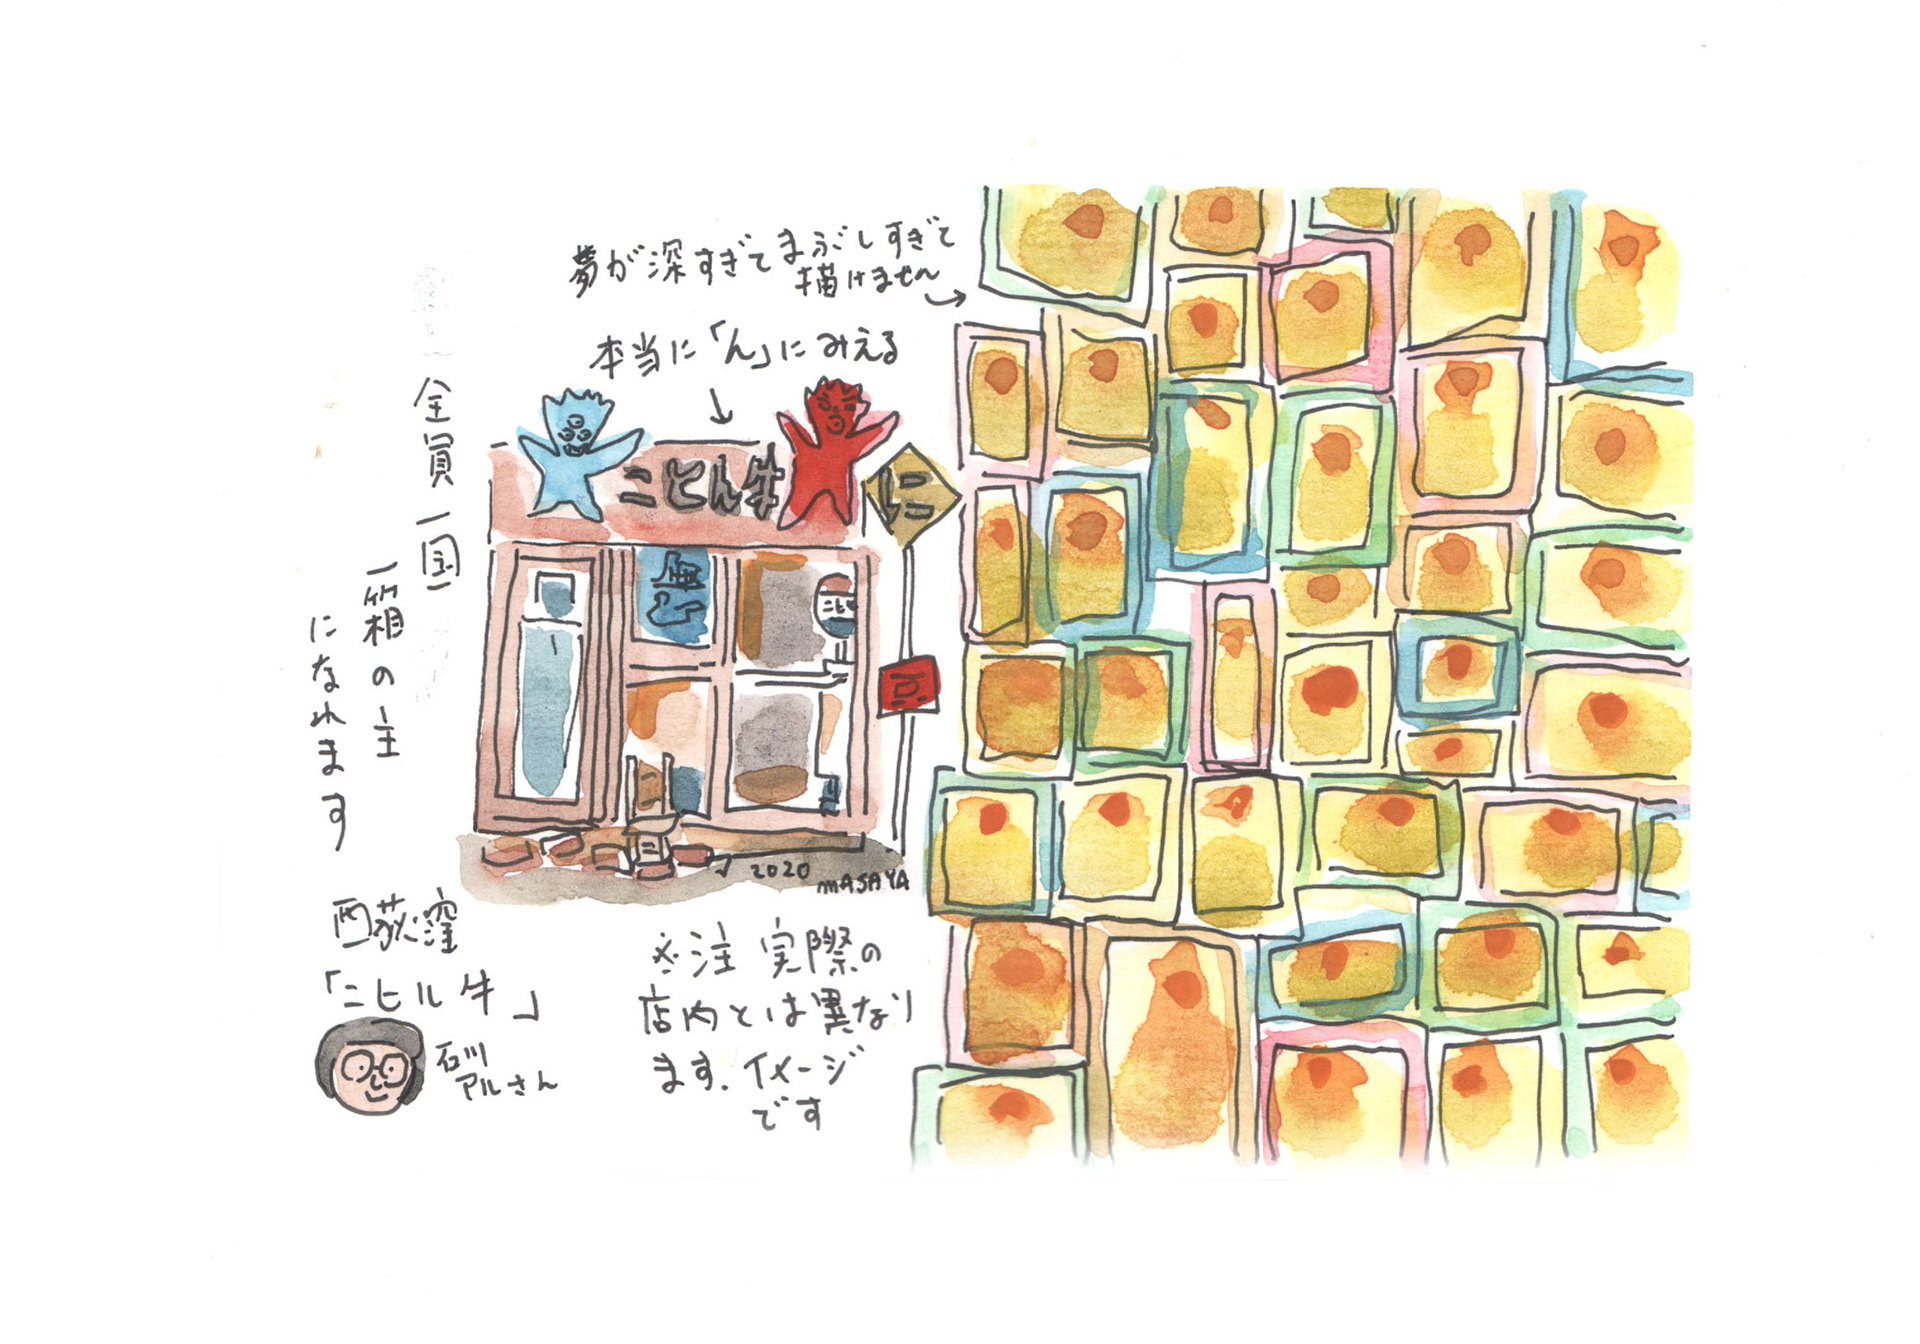 夢が深すぎてまぶしすぎて
描けません
本当に「ん」にみえる
全員一国
一箱の主
になれます
ことん牛
ニ
無
ニヒ
2020
MASAYA
西荻窪
「ニヒル牛」
石川
アルさん
※注 実際の
店内とは異なり
ます。イメージ
です